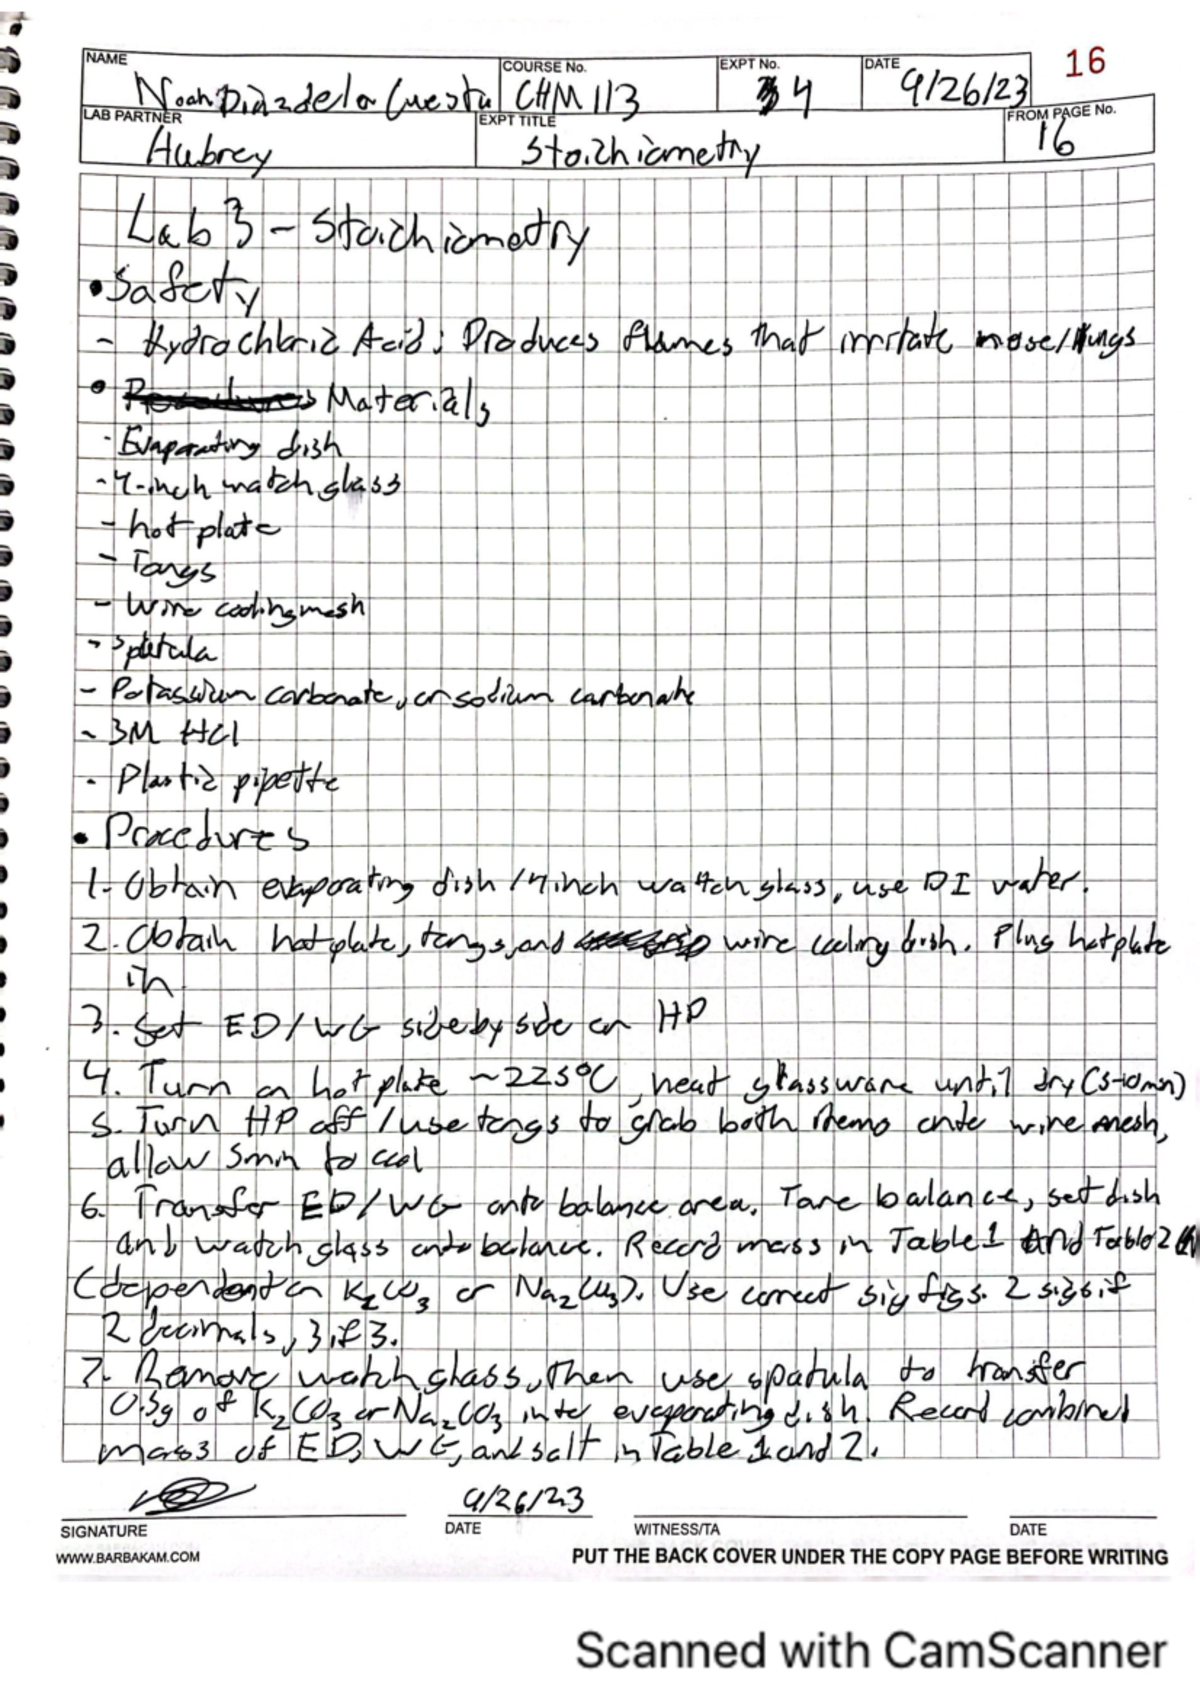 NAME
Noah Diaz de la Cuesta
COURSE No.
CHM 113
EXPT No.
4
DATE
9/26/23
16
LAB PARTNER
Aubrey
EXPT TITLE
Stoichiometry
FROM PAGE No.
16
Lab 3 - Stoichiometry
• Safety
- Hydrochloric Acid: Produces fumes that irritate nose/lungs
• Materials
- Evaporating dish
- 4-inch watch glass
- hot plate
- Tongs
- Wire cooling mesh
- Spatula
- Potassium carbonate, or sodium carbonate
- 3M HCl
- Plastic pipette
• Procedures
1. Obtain evaporating dish / 4 inch watch glass, use DI water.
2. Obtain hotplate, tongs, and wire cooling dish. Plug hotplate
in.
3. Set ED/WG side by side on HP
4. Turn on hot plate ~225°C, heat glassware until dry (5-10 min)
5. Turn HP off / use tongs to grab both items onto wire mesh,
allow 5min to cool
6. Transfer ED/WG onto balance area. Tare balance, set dish
and watch glass onto balance. Record mass in Table 1 and Table 2
(dependent on K₂CO₃ or Na₂CO₃). Use correct sig figs. 2 sigs if
2 decimals, 3 if 3.
7. Remove watch glass, then use spatula to transfer
0.5g of K₂CO₃ or Na₂CO₃ into evaporating dish. Record combined
mass of ED, WG, and salt in Table 1 and 2.
9/26/23
SIGNATURE
DATE
WITNESS/TA
DATE
WWW.BARBAKAM.COM
PUT THE BACK COVER UNDER THE COPY PAGE BEFORE WRITING
Scanned with CamScanner